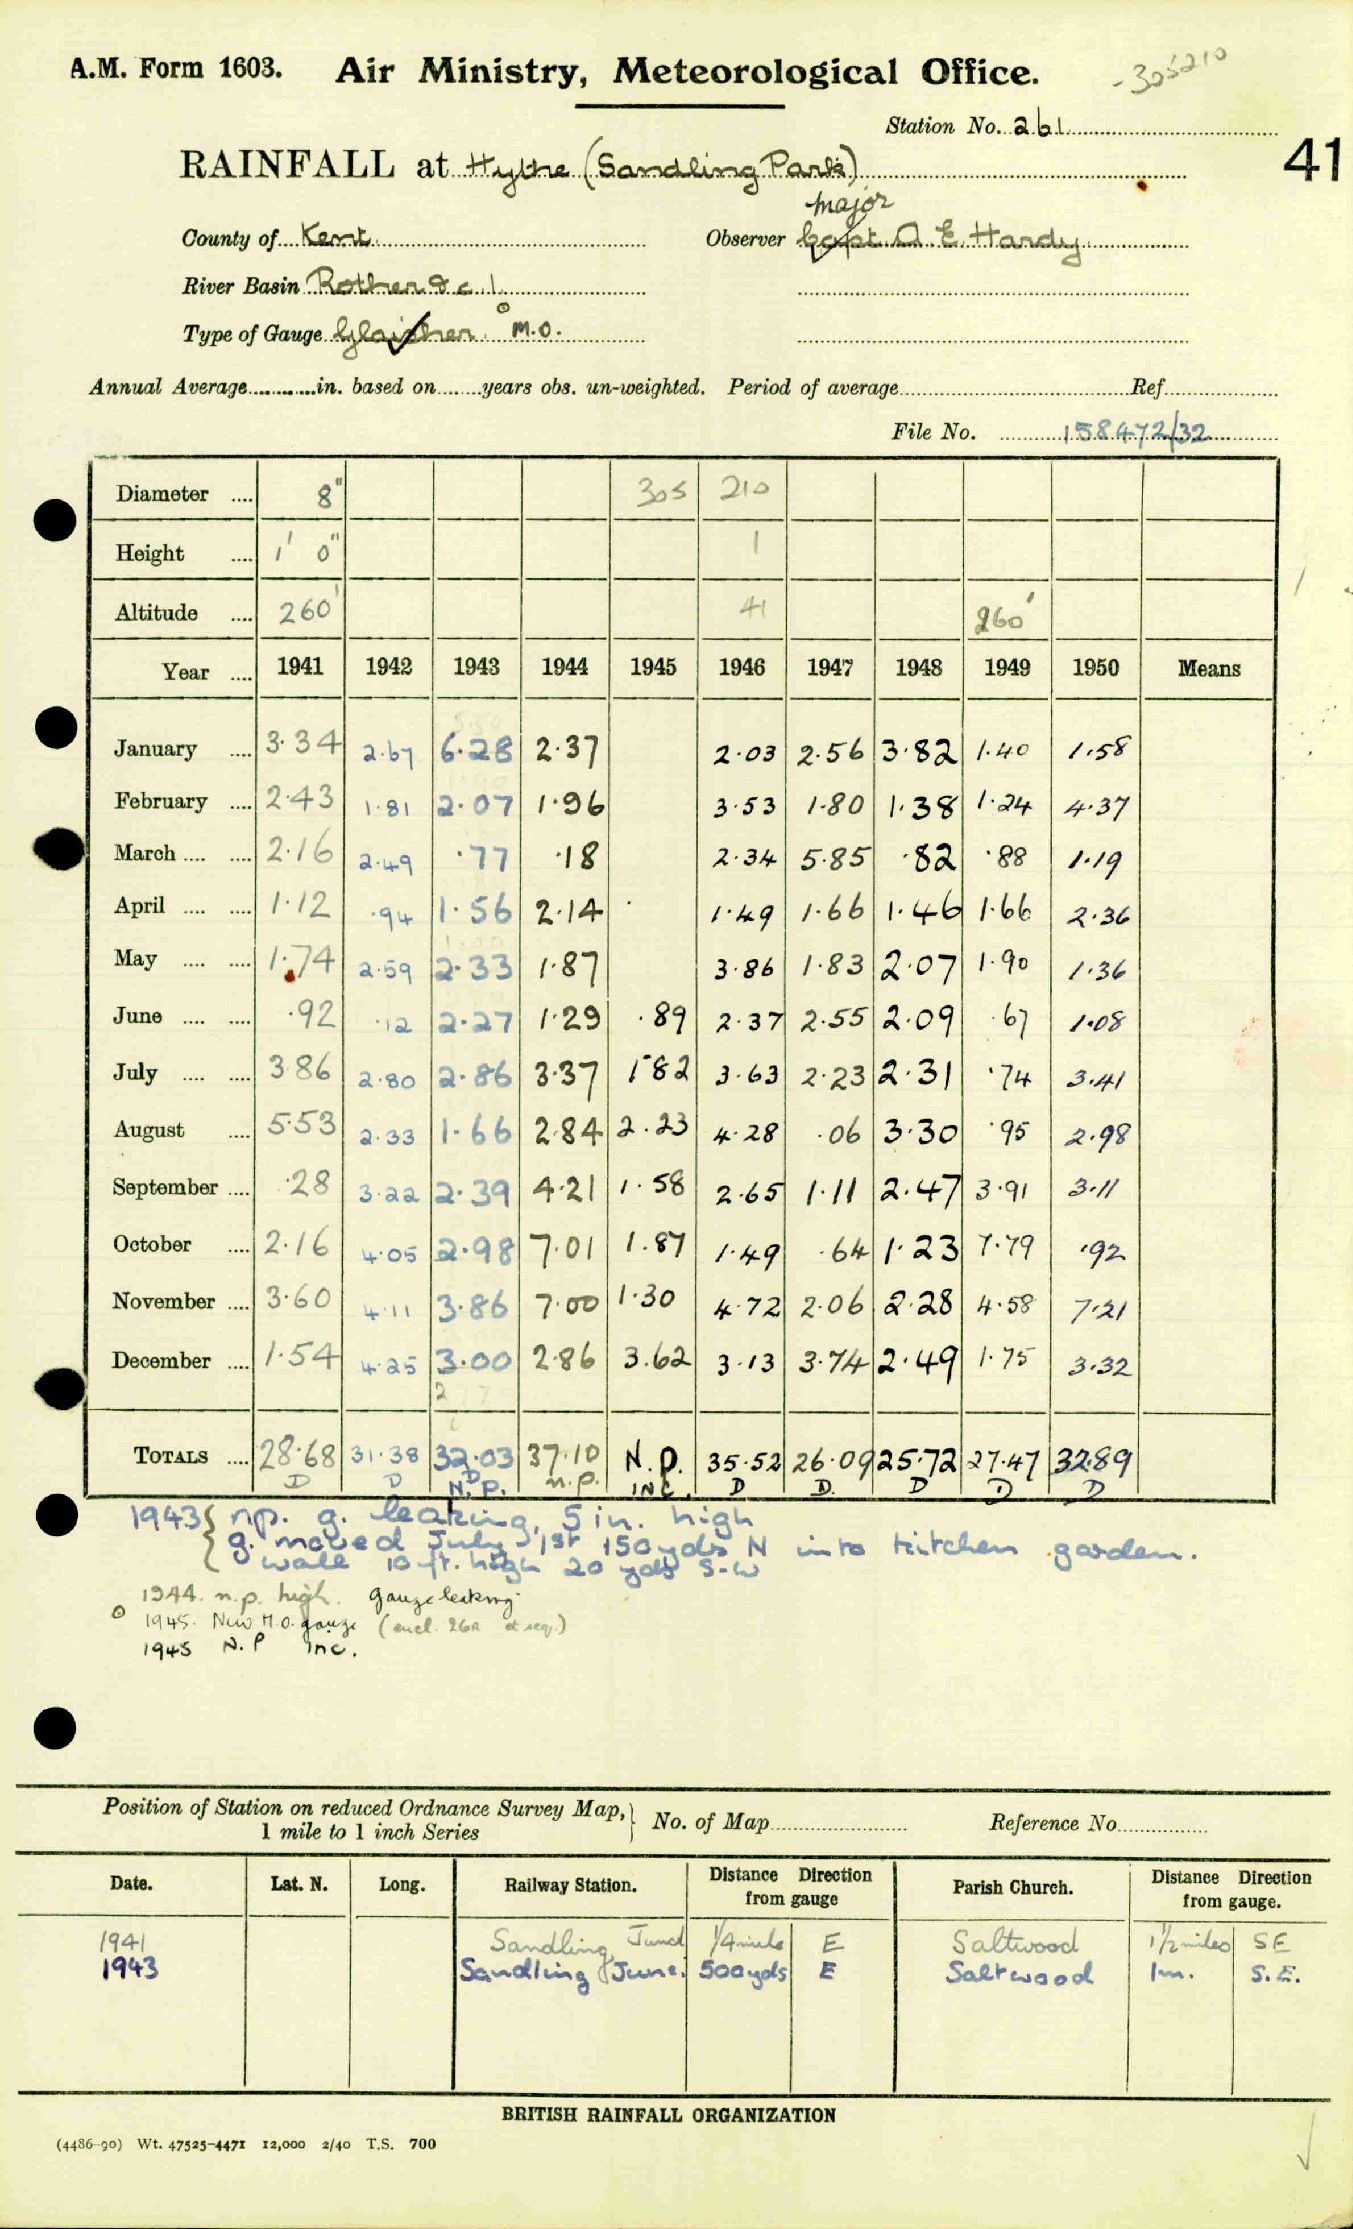 A.M. Form 1603. Air Ministry, Meteorological Office. -305210
Station No. 261
41
RAINFALL at Hythe (Sandling Park)
Major
County of Kent Observer Capt A E Hardy
River Basin Rother &c 1
Type of Gauge Glaisher M.O.
Annual Average in. based on years obs. un-weighted. Period of average Ref
File No. 158472/32
Diameter .... 8" 305 210
Height .... 1' 0" 1
Altitude .... 260' 41 260'
Year .... 1941 1942 1943 1944 1945 1946 1947 1948 1949 1950 Means
January .... 3.34 2.67 6.28 2.37 2.03 2.56 3.82 1.40 1.58
February .... 2.43 1.81 2.07 1.96 3.53 1.80 1.38 1.24 4.37
March .... .... 2.16 2.49 .77 .18 2.34 5.85 .82 .88 1.19
April .... .... 1.12 .94 1.56 2.14 1.49 1.66 1.46 1.66 2.36
May .... .... 1.74 2.59 2.33 1.87 3.86 1.83 2.07 1.90 1.36
June .... .... .92 .12 2.27 1.29 .89 2.37 2.55 2.09 .67 1.08
July .... .... 3.86 2.80 2.86 3.37 1.82 3.63 2.23 2.31 .74 3.41
August .... 5.53 2.33 1.66 2.84 2.23 4.28 .06 3.30 .95 2.98
September .... .28 3.22 2.39 4.21 1.58 2.65 1.11 2.47 3.91 3.11
October .... 2.16 4.05 2.98 7.01 1.87 1.49 .64 1.23 7.79 .92
November .... 3.60 4.11 3.86 7.00 1.30 4.72 2.06 2.28 4.58 7.21
December .... 1.54 4.25 3.00 2.86 3.62 3.13 3.74 2.49 1.75 3.32
TOTALS .... 28.68 31.38 32.03 37.10 N.P. 35.52 26.09 25.72 27.47 32.89
D D D N.P. n.p. INC. D D. D D D
1943 { n.p. g. leaking, 5 in. high
g. moved July 1st 150yds N into kitchen garden.
wall 10 ft. high 20 yds S-W
1944. n.p. high. gauge leaking
o 1945. New M.O. gauge (encl. 26A et seq.)
1945 N.P Inc.
Position of Station on reduced Ordnance Survey Map, } No. of Map Reference No
1 mile to 1 inch Series
Date. Lat. N. Long. Railway Station. Distance Direction from gauge Parish Church. Distance Direction from gauge.
1941 Sandling Junct 1/4 mile E Saltwood 1 1/2 miles SE
1943 Sandling Junc. 500yds E Saltwood 1m. S.E.
BRITISH RAINFALL ORGANIZATION
(4486-90) Wt. 47525-4471 12,000 2/40 T.S. 700